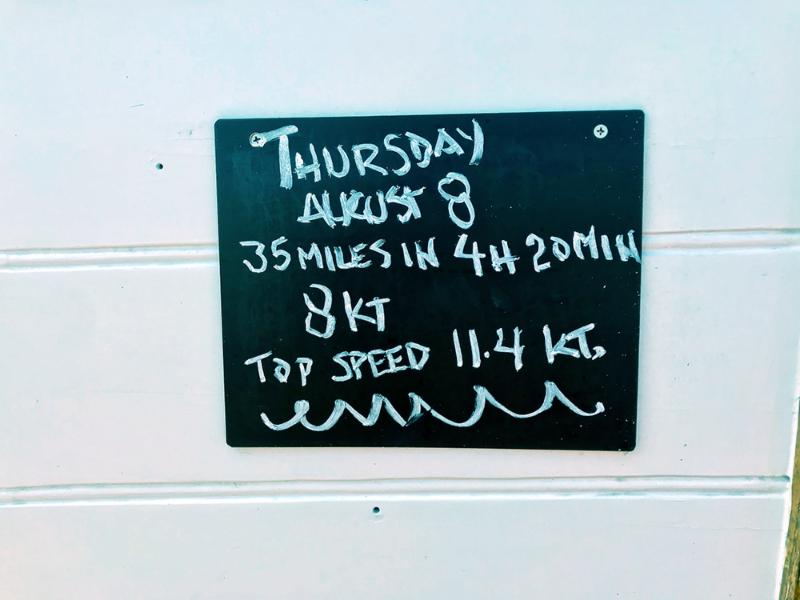 THURSDAY
AUGUST 8
35 MILES IN 4H 20MIN
8 KT
TOP SPEED 11.4 KT.